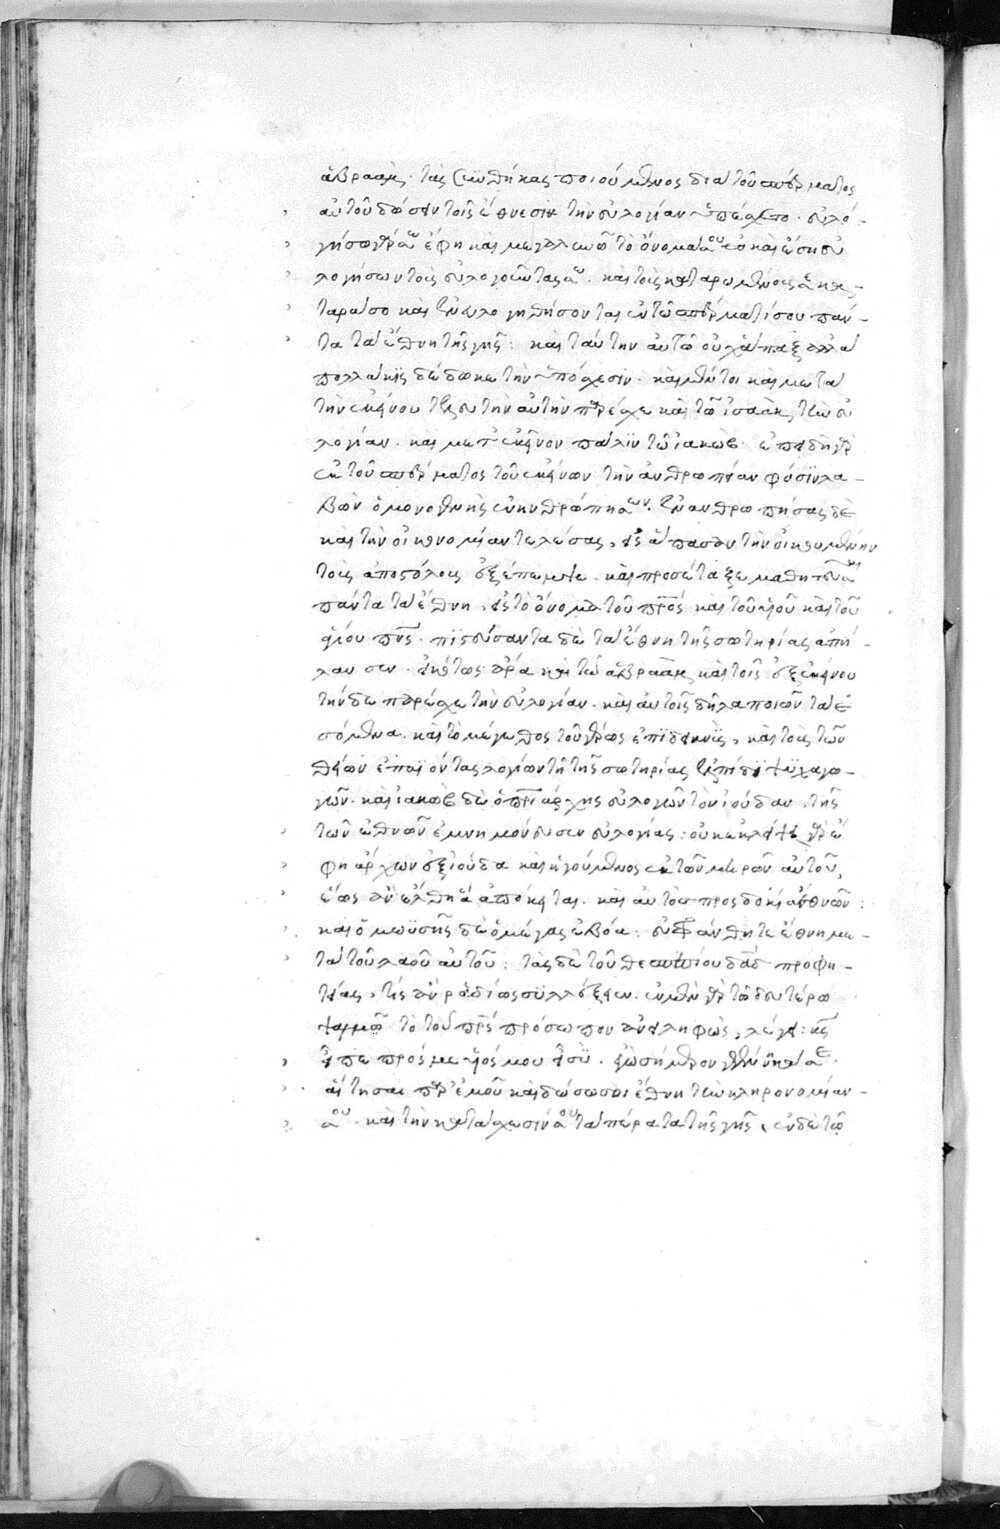 ἀβραὰμ· τὰς συνθήκας ποιούμενος διὰ τοῦ σπέρματος
αὐτοῦ δώσειν τοῖς ἔθνεσιν τὴν εὐλογίαν ὑπέσχετο· εὐλο-
γήσω γάρ σε ἔφη καὶ μεγαλυνῶ τὸ ὄνομά σου καὶ ἔσῃ εὐ
λογήσω τοὺς εὐλογοῦντάς σε· καὶ τοὺς καταρωμένους σε κα-
ταράσομαι καὶ ἐνευλογηθήσονται ἐν τῷ σπέρματί σου πάν-
τα τὰ ἔθνη τῆς γῆς: καὶ ταύτην αὐτῷ οὐχ ἅπαξ ἀλλὰ
πολλάκις δέδωκε τὴν ὑπόσχεσιν· καὶ μέντοι καὶ μετὰ
τὴν ἐκείνου τελευτὴν αὐτὴν παρέσχε καὶ τῷ ἰσαὰκ τὴν εὐ
λογίαν· καὶ μετ' ἐκεῖνον πάλιν τῷ ἰακώβ· ἐπειδὴ γὰρ
ἐκ τοῦ σπέρματος τοῦ ἐκείνων τὴν ἀνθρωπείαν φύσιν λα-
βὼν ὁ μονογενὴς ἐνηνθρώπησεν· ἐνανθρωπήσας δὲ
καὶ τὴν οἰκονομίαν τελέσας, εἰς ἅπασαν τὴν οἰκουμένην
τοὺς ἀποστόλους ἐξέπεμψε· καὶ προσέταξε μαθητεῦσαι
πάντα τὰ ἔθνη, εἰς τὸ ὄνομα τοῦ πρς καὶ τοῦ υἱοῦ καὶ τοῦ
ἁγίου πνς· πιστεύσαντα δὲ τὰ ἔθνη τῆς σωτηρίας ἀπή-
λαυσεν· εἰκότως ἄρα καὶ τῷ ἀβραὰμ καὶ τοῖς ἐξ ἐκείνου
τήνδε παρέσχε τὴν εὐλογίαν· καὶ αὐτοῖς δῆλα ποιῶν τὰ ἐ
σόμενα· καὶ τὸ μέγεθος τοῦ γένους ἐπιδεικνὺς, καὶ τοὺς τῶν
θείων ἐπαΐοντας λογίων τῇ τῆς σωτηρίας ἐλπίδι ψυχαγω-
γῶν· καὶ ἰακὼβ δὲ ὁ πριάρχης εὐλογῶν τὸν ἰούδαν, τῆς
τῶν ἐθνῶν ἐμνημόνευσεν εὐλογίας: οὐκ ἐκλείψει γὰρ ἔ
φη ἄρχων ἐξ ἰούδα καὶ ἡγούμενος ἐκ τῶν μηρῶν αὐτοῦ,
ἕως ἂν ἔλθῃ ᾧ ἀπόκειται· καὶ αὐτὸς προσδοκία ἐθνῶν:
καὶ ὁ μωϋσῆς δὲ ὁ μέγας ἐβόα: εὐφράνθητε ἔθνη με-
τὰ τοῦ λαοῦ αὐτοῦ: τὰς δὲ τοῦ θεσπεσίου δαδ προφη-
τείας, τίς ἂν ῥᾳδίως συλλέξειεν· ἐν μὲν γὰρ τῷ δευτέρῳ
ψαλμῷ τὸ τοῦ πρς πρόσωπον ἀνειληφὼς, λέγει: κς
εἶπε πρός με υἱός μου εἶ σύ· ἐγὼ σήμερον γεγέννηκά σε·
αἴτησαι παρ' ἐμοῦ καὶ δώσω σοι ἔθνη τὴν κληρονομίαν
σου· καὶ τὴν κατάσχεσίν σου τὰ πέρατα τῆς γῆς, ἐν δὲ τῷ